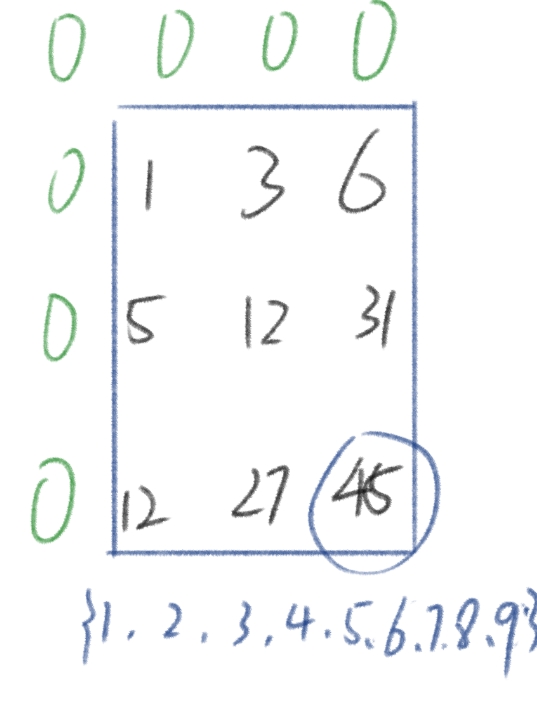 0 0 0 0
0 1 3 6
0 5 12 31
0 12 27 45
{1, 2, 3, 4, 5, 6, 7, 8, 9}